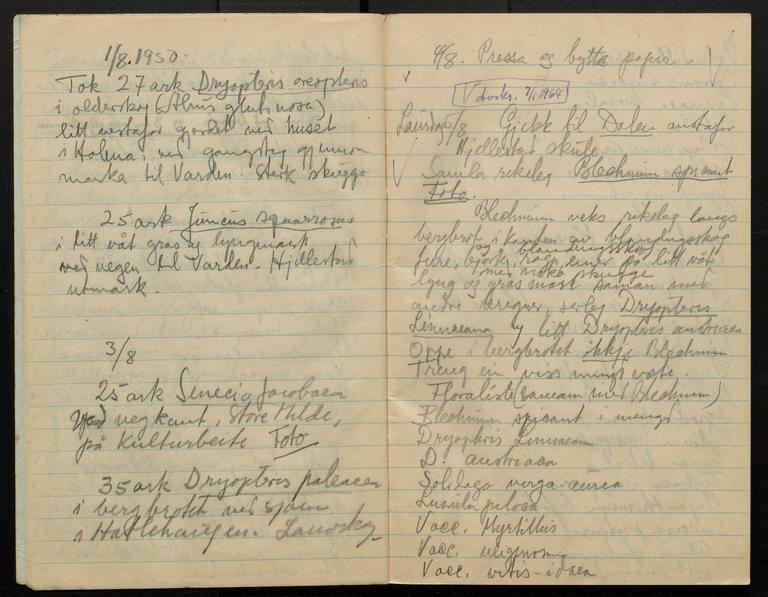 1/8. 1950.
Tok 27 ark Dryopteris oreopteris
i olderskog (Alnus glutinosa)
litt vestafor gjerdet ved huset
i Holena, ved gangsteg gjennom
marka til Varden. Sterk skugge
25 ark Juncus squarrosus
i litt våt gras og lyngmark
ved vegen til Varden. Hjellestad
utmark.
3/8
25 ark Senecio Jacobaea
ved vegkant, Store Milde,
på kulturbeite Foto
35 ark Dryopteris paleacea
i bergbrotet ved sjøen
i Hatlehaugen. Lauvskog
4/8. Pressa og bytte papir.
7/1. 1964
Laurdag 5/8 Gjekk til Dalen austafor
Hjellestad skule
Samla rikeleg Blechnum spicant
Foto.
Blechnum veks rikeleg langs
bergbrot i kanten av blandingsskog
og blandingsskog
fure, bjørk, rogn, einer på litt våt
med noko skugge
lyng og grasmark saman med
andre bregner, serleg Dryopteris
Linnaeana og litt Dryopteris austriaca
Oppe i bergbrotet ikkje Blechnum
Treng ein viss mengd væte.
Floraliste (saman med Blechnum)
Blechnum spicant i mengd
Dryopteris Linnaeana
D. austriaca
Solidago verga-aurea
Luzula pilosa
Vacc. Myrtillus
Vacc. uliginosum
Vacc. vitis-idaea